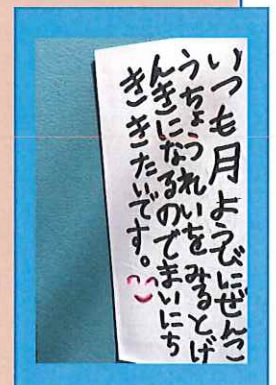 いつも月ようびにぜんこ
うちょうれいをみるとげ
んきになるのでまいにち
ききたいです。